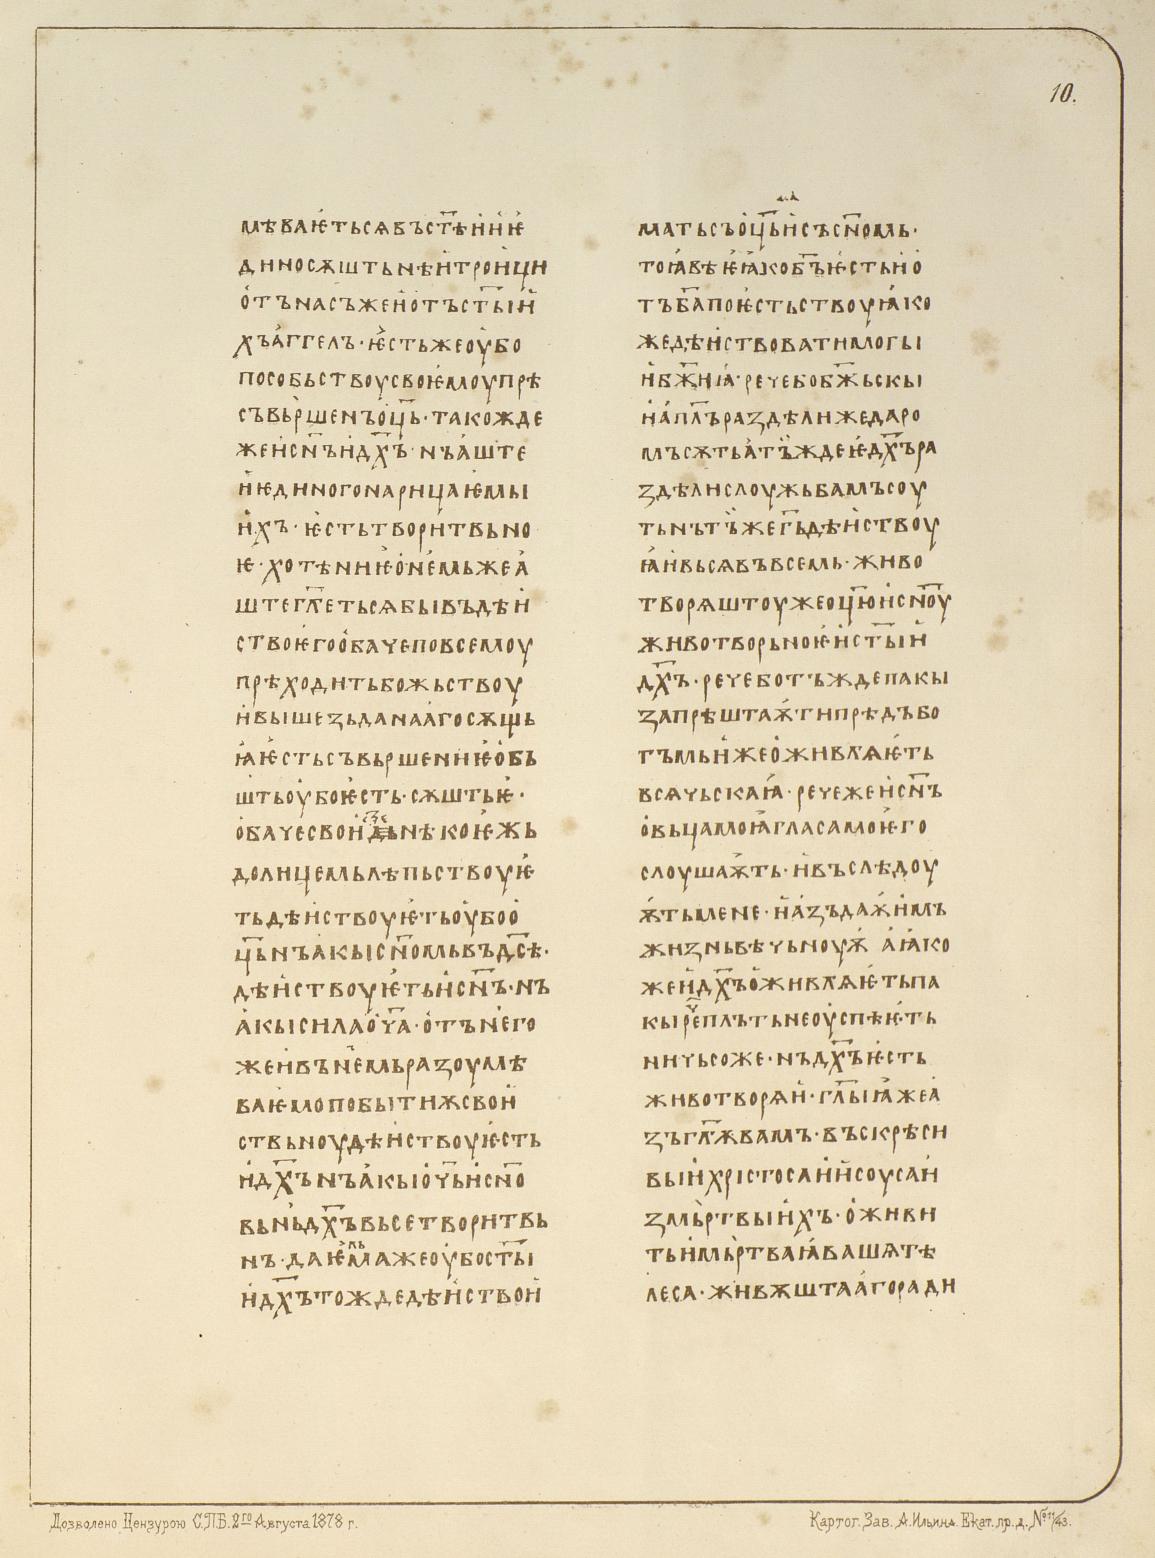 10.
мѣваѥтьсѧвъст҃ѣиниѥ
диносѫштьнѣитроици
отънасъжеиотъст҃ыи
хъаггелъ·ѥстьжеоубо
пособьствоусвоѥмоупрѣ
съвьршенъоц҃ь·такожде
жеисн҃ъидх҃ъ·нъаште
иѥдиногонарицаѥмы
ихъ·ѥстьтворитвьно
ѥ·хотѣниѥонемьжеа
штегл҃етьсѧбывъдѣи
ствоѥгообачеповсемоу
прѣходитьбожьствоу
ивышезьданаагосѫщь
ꙗѥстьсъвьршениѥобь
штьоубоѥсть·сѫштьѥ·
обачесвоидьнѣкоѥжь
долицемьлѣпьствоуѥ
тьдѣиствоуѥтьоубоо
ц҃ьнъакысн҃омьвъдс҃ѣ·
дѣиствоуѥтьисн҃ъ·нъ
акысилаоч҃а·отънего
жеивънемьразоумѣ
ваѥмопобытиѫсвои
ствьноудѣиствоуѥсть
идх҃ънъакыоч҃ьисн҃о
вьньдх҃ъвьсетворитвь
нъ·даѥмажеоубост҃ы
идх҃ътождедѣиствои
матьсъоц҃ьисъсн҃омь·
тоꙗвѣѥꙗкоб҃ъѥстьио
тъб҃апоѥстьствоуꙗко
жедѣиствоватимогы
ибж҃иꙗ·речебобж҃ьскы
иапл҃ъраздѣлижедаро
мъсѫтьатъждеѥдх҃ъра
здѣлислоужьбамъсоу
тьнътъжег҃ьдѣиствоу
ꙗивьсѧвъвсемь·живо
творѧштоужеоц҃юисн҃оу
животворьноѥист҃ыи
дх҃ъ·речеботъждепакы
запрѣштаѭтипрѣдъбо
гъмьижеоживлꙗѥть
всѧчьскаꙗ·речежеисн҃ъ
овьцамоꙗгласамоѥго
слоушаѭть·ивъслѣдоу
ѭтьмене·иазъдаѭимъ
жизньвѣчьноуѭ аꙗко
жеидх҃ъоживлꙗѥтьпа
кырⷱ҇еплътьнеоуспѣѥть
ничьсоже·нъдх҃ъѥсть
животворѧи·гл҃ыꙗжеа
зъгл҃ѫвамъ·въскрѣси
выихрістосаиисоусаи
змьртвыихъ·оживи
тьимьртваꙗвашѧтѣ
леса·живѫштаагоради
Дозволено Цензурою С.П.Б. 2го Августа 1878 г.
Картог. Зав. А. Ильина. Екат. пр. д. № 11/43.